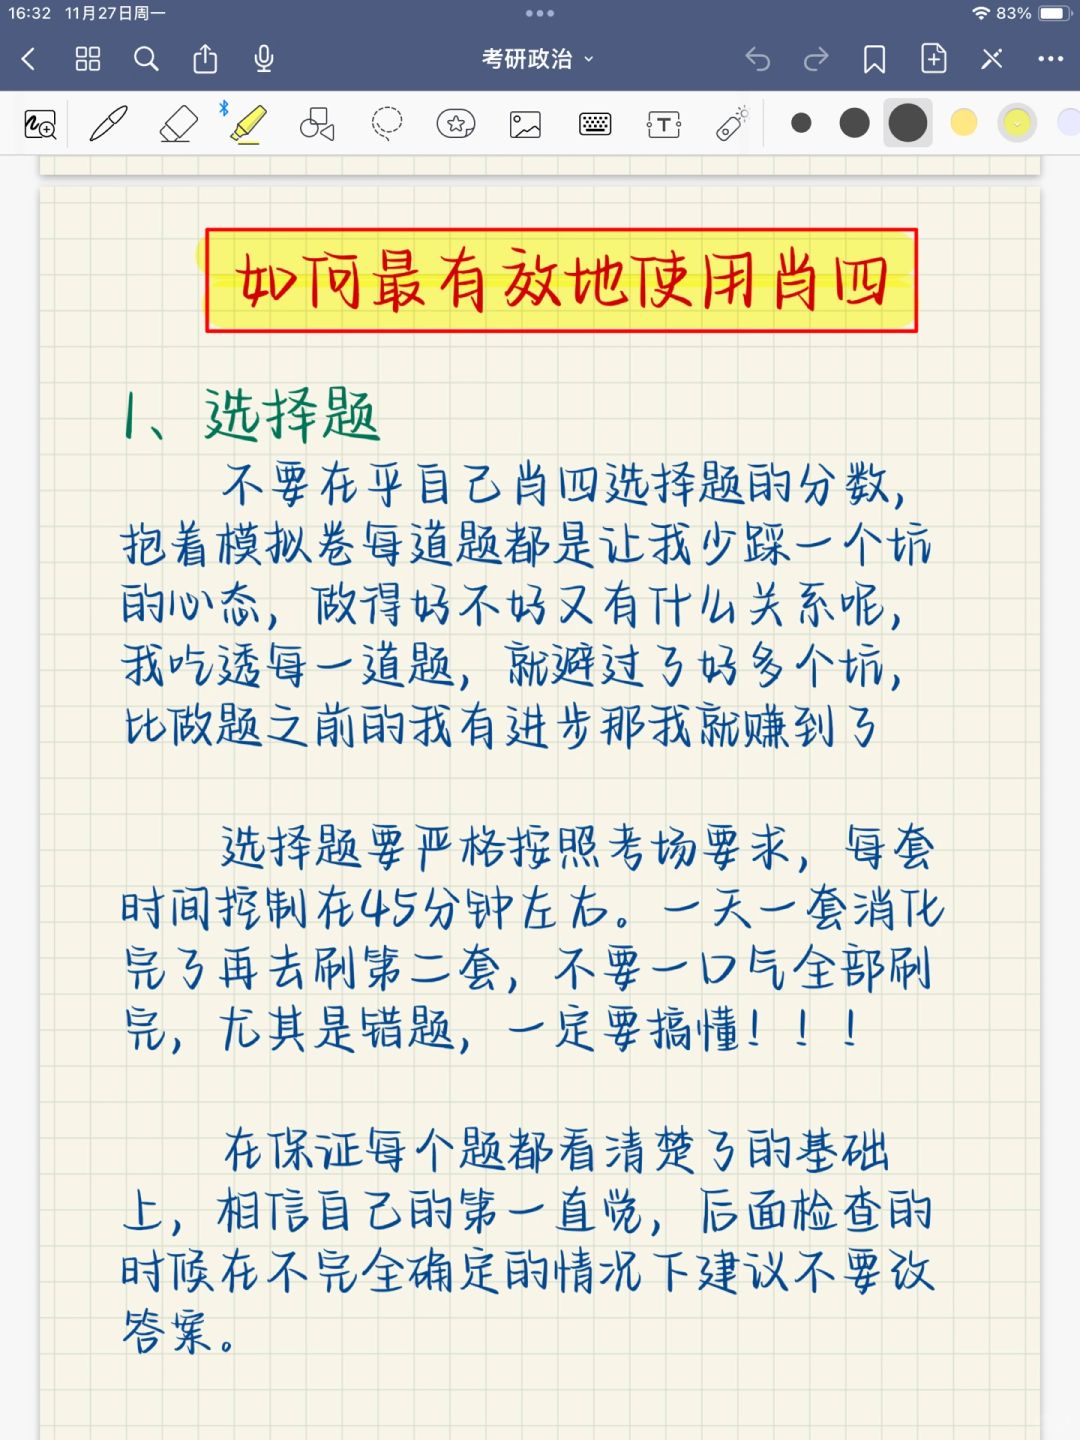 16:32 11月27日周一
83%
考研政治
T
如何最有效地使用肖四
1、选择题
不要在乎自己肖四选择题的分数，
抱着模拟卷每道题都是让我少踩一个坑
的心态，做得好不好又有什么关系呢，
我吃透每一道题，就避过了好多个坑，
比做题之前的我有进步那我就赚到了
选择题要严格按照考场要求，每套
时间控制在45分钟左右。一天一套消化
完了再去刷第二套，不要一口气全部刷
完，尤其是错题，一定要搞懂！！！
在保证每个题都看清楚了的基础
上，相信自己的第一直觉，后面检查的
时候在不完全确定的情况下建议不要改
答案。